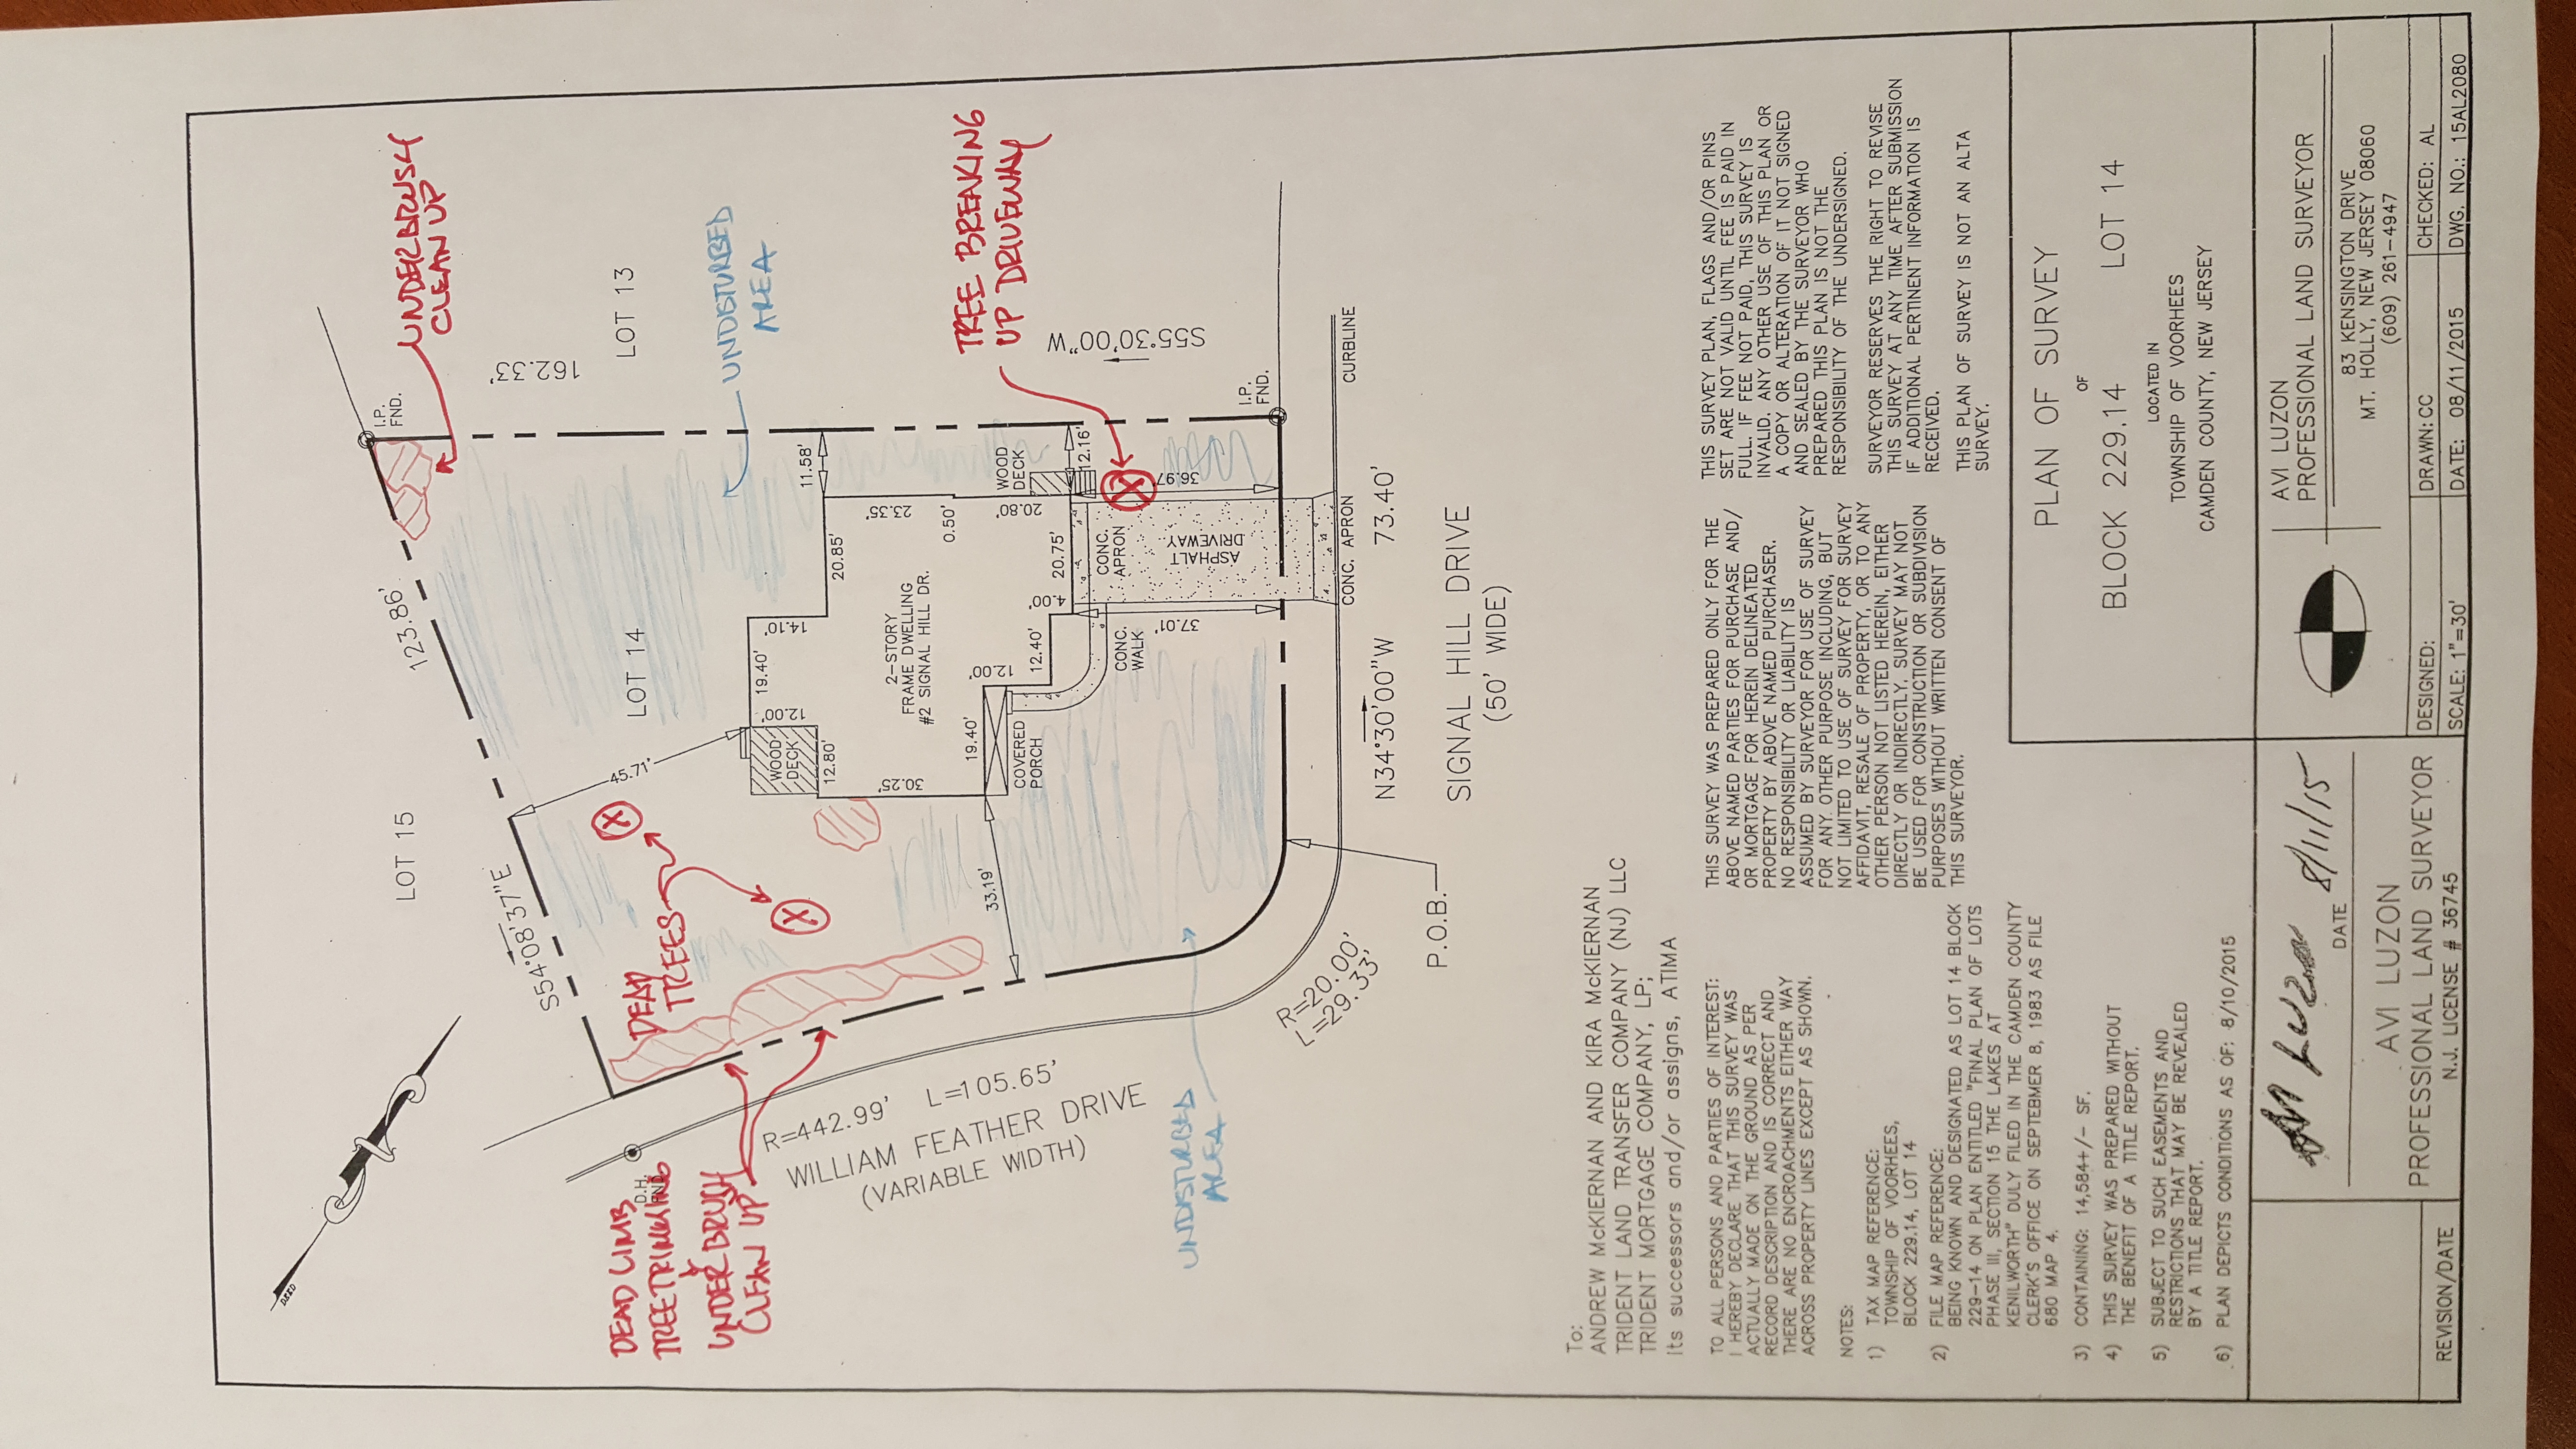 UNDERBRUSH
CLEAN UP
LOT 13
162.33'
I.P.
FND.
UNDISTURBED
AREA
TREE BREAKING
UP DRIVEWAY
S55°30'00"W
I.P.
FND.
CURBLINE
123.86'
LOT 14
LOT 15
S54°08'37"E
45.71'
11.58'
12.16'
WOOD
DECK
36.97'
23.35'
0.50'
20.80'
20.85'
14.10'
19.40'
12.00'
WOOD
DECK
12.80'
30.25'
2-STORY
FRAME DWELLING
#2 SIGNAL HILL DR.
20.75'
4.00'
12.40'
12.00'
19.40'
COVERED
PORCH
CONC.
APRON
ASPHALT
DRIVEWAY
CONC.
WALK
37.01'
33.19'
CONC. APRON
N34°30'00"W
73.40'
SIGNAL HILL DRIVE
(50' WIDE)
P.O.B.
R=20.00'
L=29.33'
DEAD
TREES
D.H.
FND.
R=442.99'
L=105.65'
WILLIAM FEATHER DRIVE
(VARIABLE WIDTH)
DEAD LIMB
TREE TRIMMING
UNDERBRUSH
CLEAN UP
UNDISTURBED
AREA
To:
ANDREW McKIERNAN AND KIRA McKIERNAN
TRIDENT LAND TRANSFER COMPANY (NJ) LLC
TRIDENT MORTGAGE COMPANY, LP;
its successors and/or assigns, ATIMA
TO ALL PERSONS AND PARTIES OF INTEREST:
I HEREBY DECLARE THAT THIS SURVEY WAS
ACTUALLY MADE ON THE GROUND AS PER
RECORD DESCRIPTION AND IS CORRECT AND
THERE ARE NO ENCROACHMENTS EITHER WAY
ACROSS PROPERTY LINES EXCEPT AS SHOWN.
NOTES:
1) TAX MAP REFERENCE:
TOWNSHIP OF VOORHEES,
BLOCK 229.14, LOT 14
2) FILE MAP REFERENCE:
BEING KNOWN AND DESIGNATED AS LOT 14 BLOCK
229-14 ON PLAN ENTITLED "FINAL PLAN OF LOTS
PHASE III, SECTION 15 THE LAKES AT
KENILWORTH" DULY FILED IN THE CAMDEN COUNTY
CLERK'S OFFICE ON SEPTEBMER 8, 1983 AS FILE
680 MAP 4.
3) CONTAINING: 14,584+/- SF.
4) THIS SURVEY WAS PREPARED WITHOUT
THE BENEFIT OF A TITLE REPORT.
5) SUBJECT TO SUCH EASEMENTS AND
RESTRICTIONS THAT MAY BE REVEALED
BY A TITLE REPORT.
6) PLAN DEPICTS CONDITIONS AS OF: 8/10/2015
THIS SURVEY WAS PREPARED ONLY FOR THE
ABOVE NAMED PARTIES FOR PURCHASE AND/
OR MORTGAGE FOR HEREIN DELINEATED
PROPERTY BY ABOVE NAMED PURCHASER.
NO RESPONSIBILITY OR LIABILITY IS
ASSUMED BY SURVEYOR FOR USE OF SURVEY
FOR ANY OTHER PURPOSE INCLUDING, BUT
NOT LIMITED TO USE OF SURVEY FOR SURVEY
AFFIDAVIT, RESALE OF PROPERTY, OR TO ANY
OTHER PERSON NOT LISTED HEREIN, EITHER
DIRECTLY OR INDIRECTLY. SURVEY MAY NOT
BE USED FOR CONSTRUCTION OR SUBDIVISION
PURPOSES WITHOUT WRITTEN CONSENT OF
THIS SURVEYOR.
THIS SURVEY PLAN, FLAGS AND/OR PINS
SET ARE NOT VALID UNTIL FEE IS PAID IN
FULL. IF FEE NOT PAID, THIS SURVEY IS
INVALID. ANY OTHER USE OF THIS PLAN OR
A COPY OR ALTERATION OF IT NOT SIGNED
AND SEALED BY THE SURVEYOR WHO
PREPARED THIS PLAN IS NOT THE
RESPONSIBILITY OF THE UNDERSIGNED.
SURVEYOR RESERVES THE RIGHT TO REVISE
THIS SURVEY AT ANY TIME AFTER SUBMISSION
IF ADDITIONAL PERTINENT INFORMATION IS
RECEIVED.
THIS PLAN OF SURVEY IS NOT AN ALTA
SURVEY.
PLAN OF SURVEY
OF
BLOCK 229.14 LOT 14
LOCATED IN
TOWNSHIP OF VOORHEES
CAMDEN COUNTY, NEW JERSEY
AVI LUZON
PROFESSIONAL LAND SURVEYOR
83 KENSINGTON DRIVE
MT. HOLLY, NEW JERSEY 08060
(609) 261-4947
DESIGNED:
DRAWN: CC
CHECKED: AL
SCALE: 1"=30'
DATE: 08/11/2015
DWG. NO.: 15AL2080
DATE 8/11/15
AVI LUZON
PROFESSIONAL LAND SURVEYOR
N.J. LICENSE # 36745
REVISION/DATE
DEED